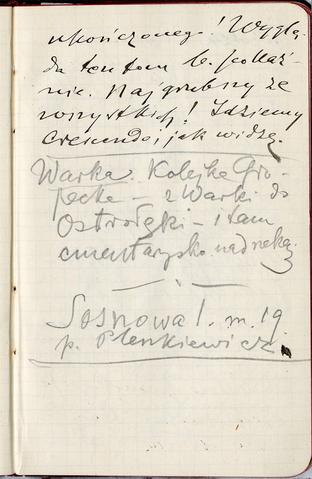 ukończonego! Wyglą-
da ten tom b. poważ-
nie. Najgrubszy ze
wszystkich! Idziemy
crescendo, jak widzę.
Warka. Kolejka Gró-
jecka – z Warki do
Ostrołęki – i tam
cmentarzysko nad rzeką.
Sosnowa 1. m. 19.
p. Plenkiewicz.